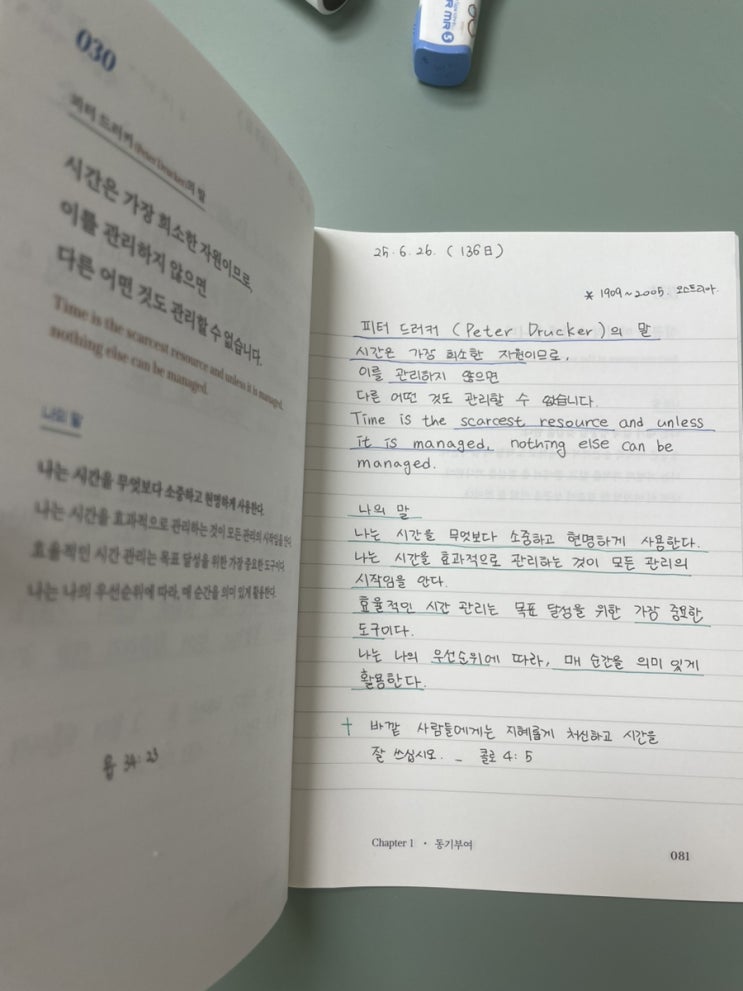 030
피터 드러커(Peter Drucker)의 말
시간은 가장 희소한 자원이므로,
이를 관리하지 않으면
다른 어떤 것도 관리할 수 없습니다.
Time is the scarcest resource and unless it is managed,
nothing else can be managed.
나의 말
나는 시간을 무엇보다 소중하고 현명하게 사용한다.
나는 시간을 효과적으로 관리하는 것이 모든 관리의 시작임을 안다.
효율적인 시간 관리는 목표 달성을 위한 가장 중요한 도구이다.
나는 나의 우선순위에 따라, 매 순간을 의미 있게 활용한다.
욥 34:23
25.6.26. (136日)
* 1909~2005. 오스트리아.
피터 드러커 (Peter Drucker)의 말
시간은 가장 희소한 자원이므로,
이를 관리하지 않으면
다른 어떤 것도 관리할 수 없습니다.
Time is the scarcest resource and unless
it is managed, nothing else can be
managed.
나의 말
나는 시간을 무엇보다 소중하고 현명하게 사용한다.
나는 시간을 효과적으로 관리하는 것이 모든 관리의
시작임을 안다.
효율적인 시간 관리는 목표 달성을 위한 가장 중요한
도구이다.
나는 나의 우선순위에 따라, 매 순간을 의미 있게
활용한다.
† 바깥 사람들에게는 지혜롭게 처신하고 시간을
잘 쓰십시오. _ 콜로 4:5
Chapter 1 · 동기부여
081